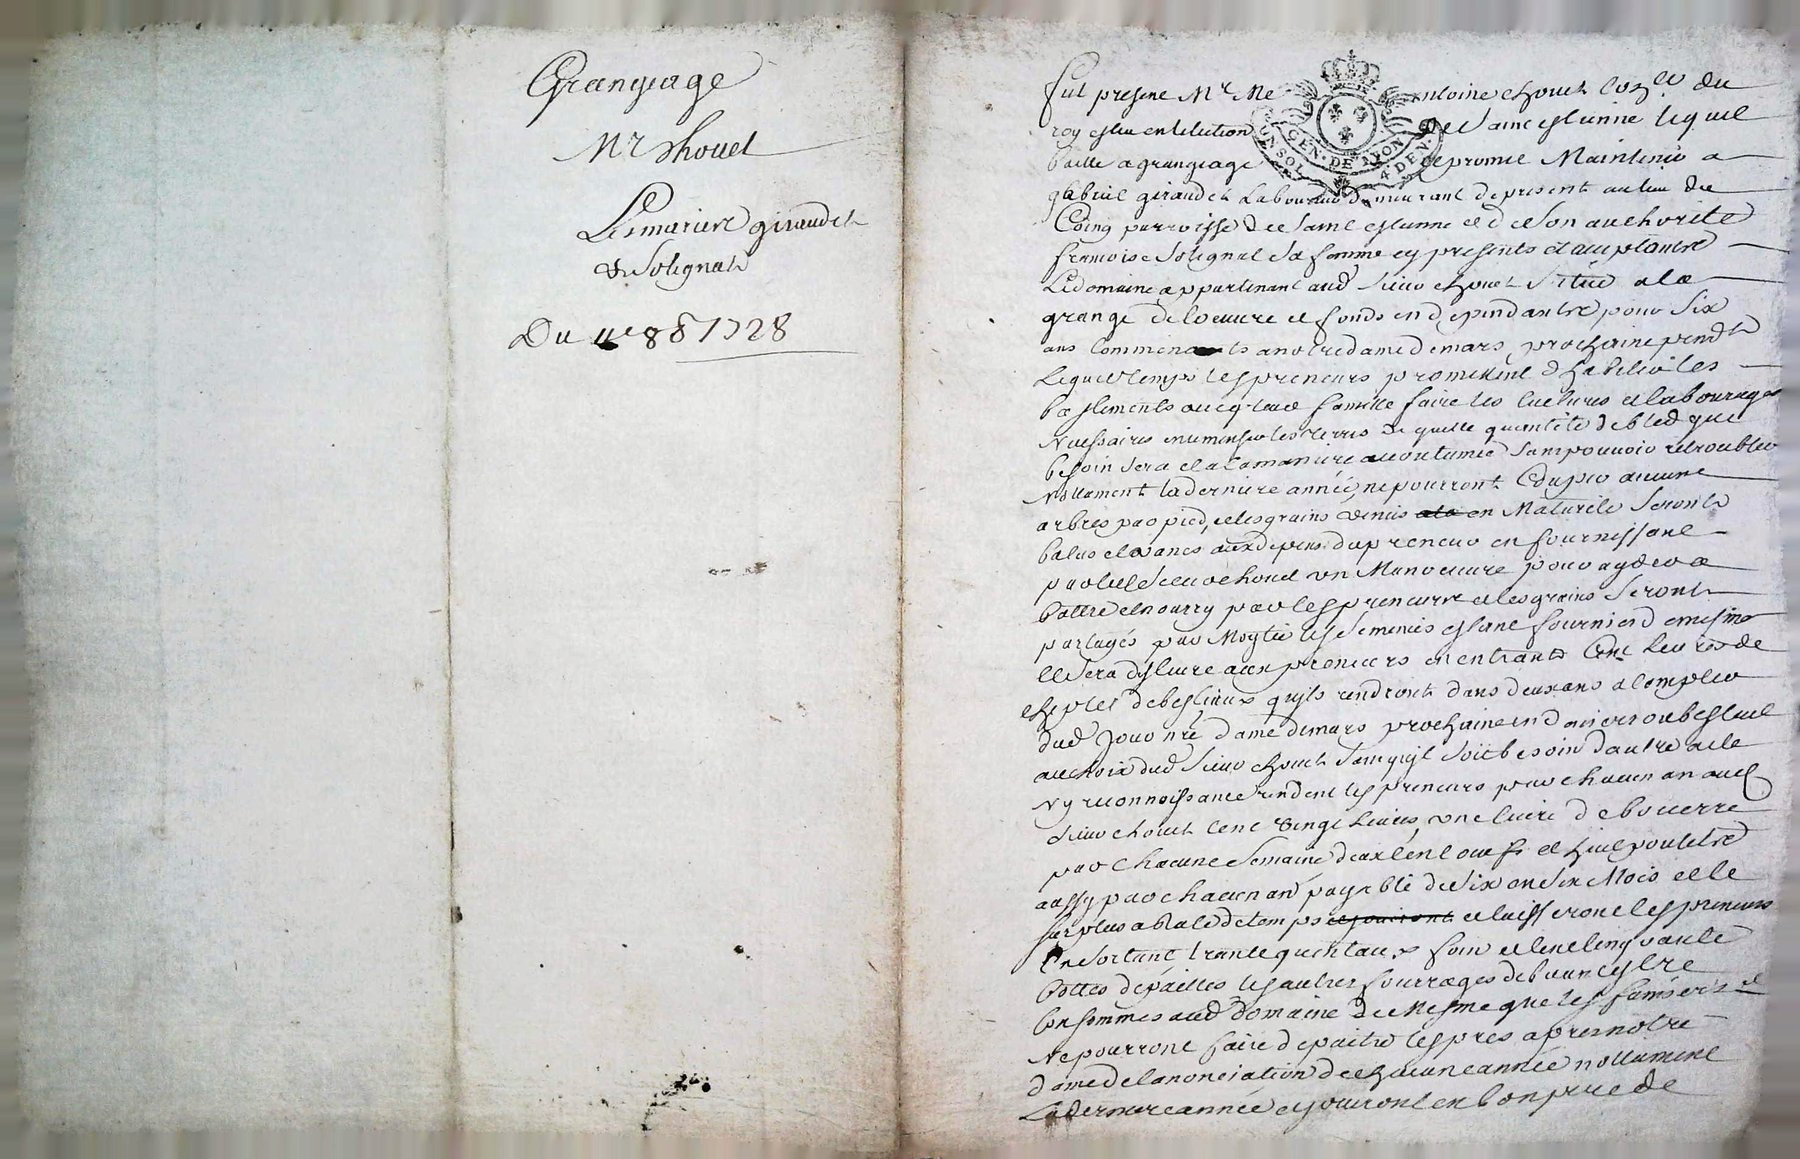 Grangeage
Mr Chouet
Les mariex giraudet
& Solignat
Du 11e 8b 1728
fut present Mr Me Antoine Chouet Conser du
roy eslu en lelection de Saint estienne lequel
baille a grangeage et promet Maintenir a
gabriel giraudet Laboureur demeurant depresent au lieu du
Coing parroisse de Saint estienne et de son authorité
francoise Solignat sa femme cy presents et acceptantre
Le domaine appartenant aud sieur chouet situé a la
grange de loeuvre et fonds en dependantre pour six
ans Commencants a notre dame de mars prochaine pendt
Lequel temps les preneurs promettent d habiter les
bastiments avecq leur famille faire les cultures et labourages
Necessaires ensemenser les terres de quelle quantité de bled que
besoin sera et a la maniere accoutumée sans pouvoir retroubler
Nottament la derniere année, ne pourront Couper aucune
arbres par pied, et les grains venus en Maturité seronts
batus et vanés aux depens du preneur en fournissant
par led sieur chouet un Manoeuvre pour ayder a
battre et nourry par les preneurs et les grains seronts
partagés par Moytié les semences estant fournier de mesme
il sera deslivré aux preneurs en entrants Cent Livres de
cheptel de bestiaux quils rendront dans deux ans a compter
dud Jour nre dame de mars prochaine en deniers ou bestail
au choix dud sieur chouet sans quil soit besoin dautre acte
ny reconnoissance rendent les preneurs par chacun an aud
sieur chouet cent vingt livres, une livre de beurre
par chacune semaine deux cent oeufs et huit pouletre
aussy par chacun an payable de six en six Mois et le
surplus a Rate de temps et jouiront et laisseront les preneurs
En sortant trante quintaux foin et cent cinquante
bottes de pailles les autres fourrages debvant estre
Consommés aud domaine de Mesme que les fumiers et
Ne pourront faire depaitre les prés apres notre
dame de lanonciation de chacune année nottament
La derniere année et jouiront en bon pere de
GEN. DE LYON
UN SOL
4. DEN.